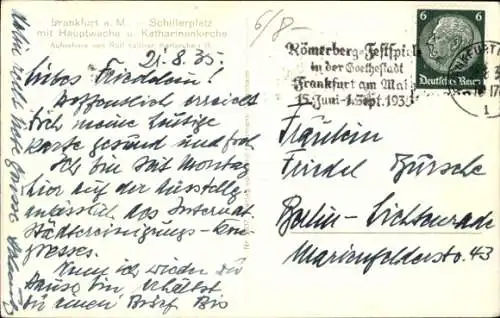 Frankfurt a. M. Schillerplatz
mit Hauptwache u. Katharinenkirche
21.8.35.
Liebes Friedelein!
Hoffentlich erreicht
Dich meine heutige
Karte gesund und froh.
Ich bin seit Montag
hier auf der Ausstellg
anlässlich des Internat.
Städtereinigungs-Kon
gresses.
Wenn ich wieder zu
Hause bin erhältst
Du einen Brief Bis
dahin recht liebe Grüsse
6/8-
Römerberg-Festspiele
in der Goethestadt
Frankfurt am Main
15. Juni-1. Sept. 1935
6 6
Deutsches Reich
FRANKFURT
Fräulein
Friedel Bursche
Berlin-Lichtenrade
Marienfelderstr. 43